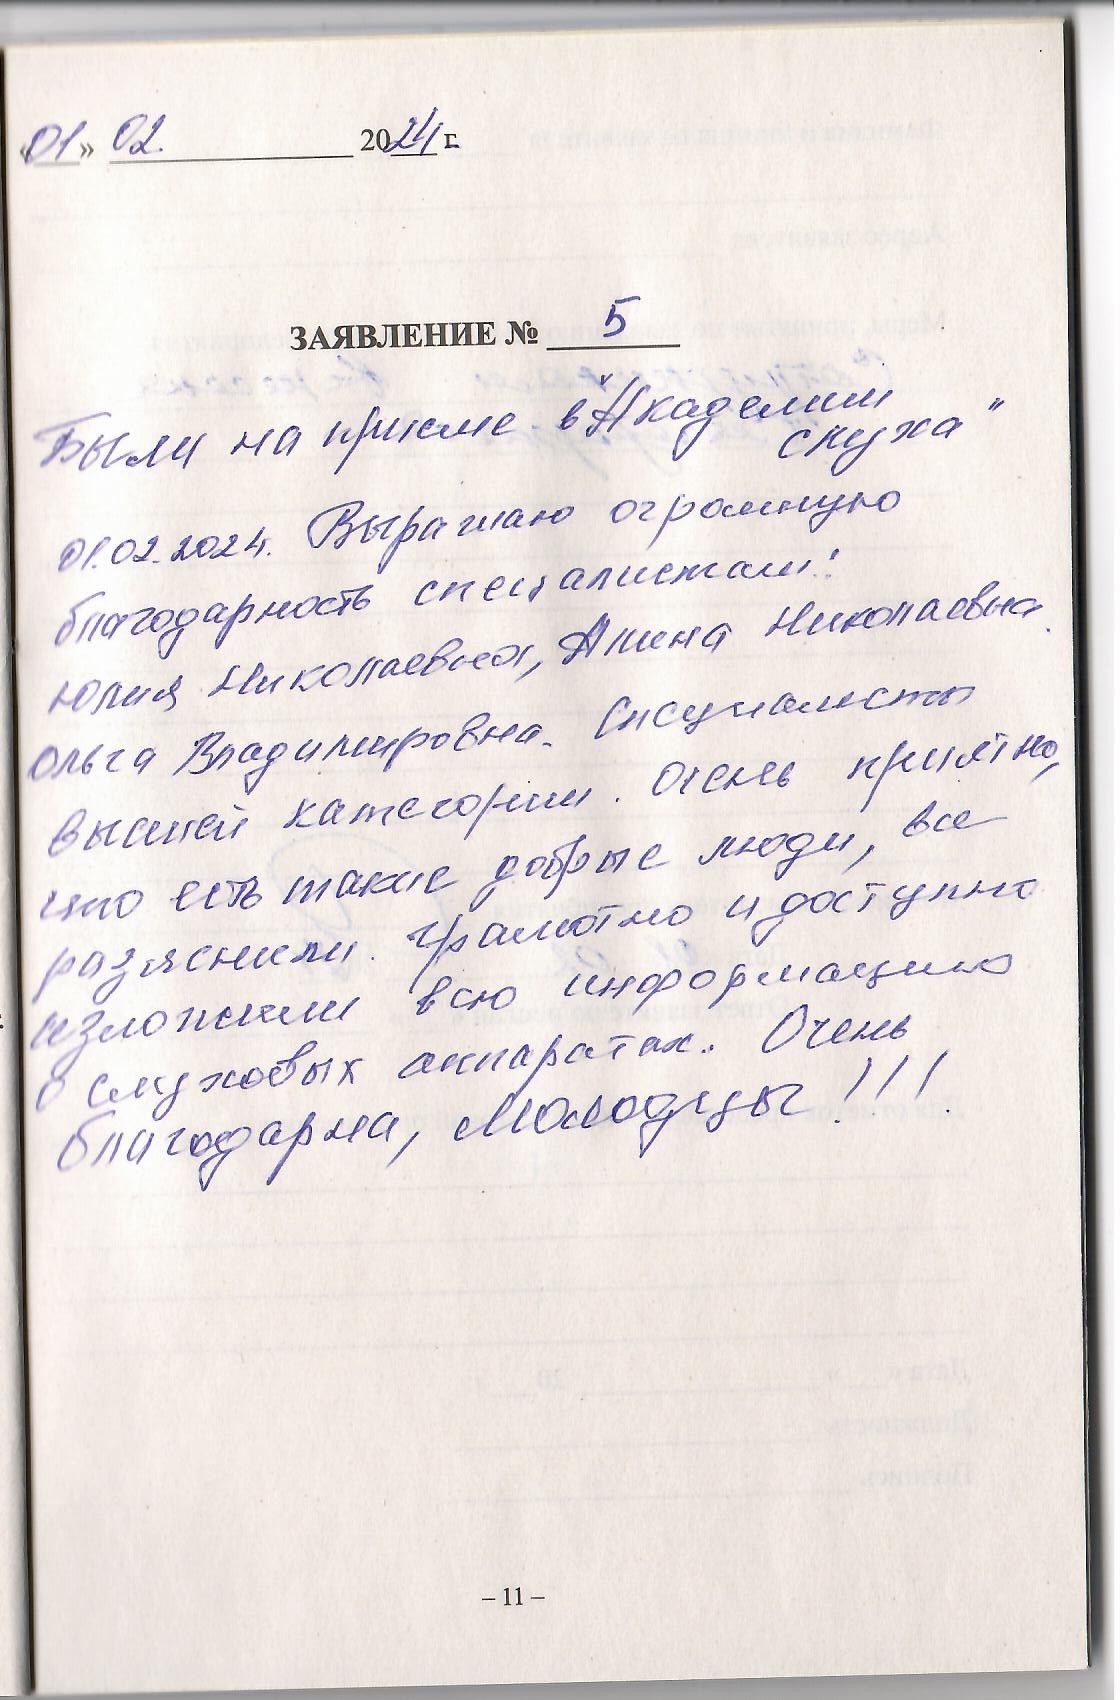 «01» 02. 2024 г.
ЗАЯВЛЕНИЕ № 5
Были на приеме в "Академии
слуха"
01.02.2024. Выражаю огромную
благодарность специалистам:
Юлия Николаевна, Алина Николаевна.
Ольга Владимировна. Специалисты
высшей категории. Очень приятно,
что есть такие добрые люди, все
разяснили. Грамотно и доступно
изложили всю информацию
о слуховых аппаратах. Очень
благодарна, Молодцы!!!
– 11 –